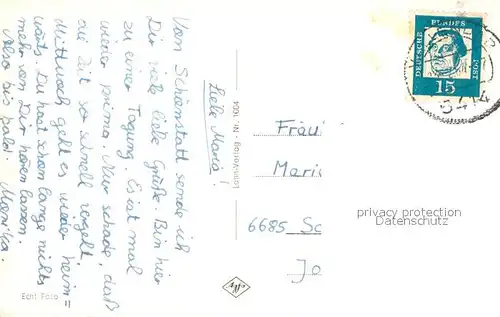 Liebe Maria!
Vom Schönstatt sende ich
Dir viele liebe Grüße. Bin hier
zu einer Tagung. Es ist mal
wieder prima. Nur schade, daß
die Zeit so schnell vergeht.
Mittwoch geht es wieder heim=
wärts. Du hast schon lange nichts
mehr von Dir hören lassen.
Also bis bald. Monika.
Echt Foto
Nr. 1004
DEUTSCHE BUNDESPOST
15
Fräul
Mari
6685 Sc
Jo
privacy protection
Datenschutz